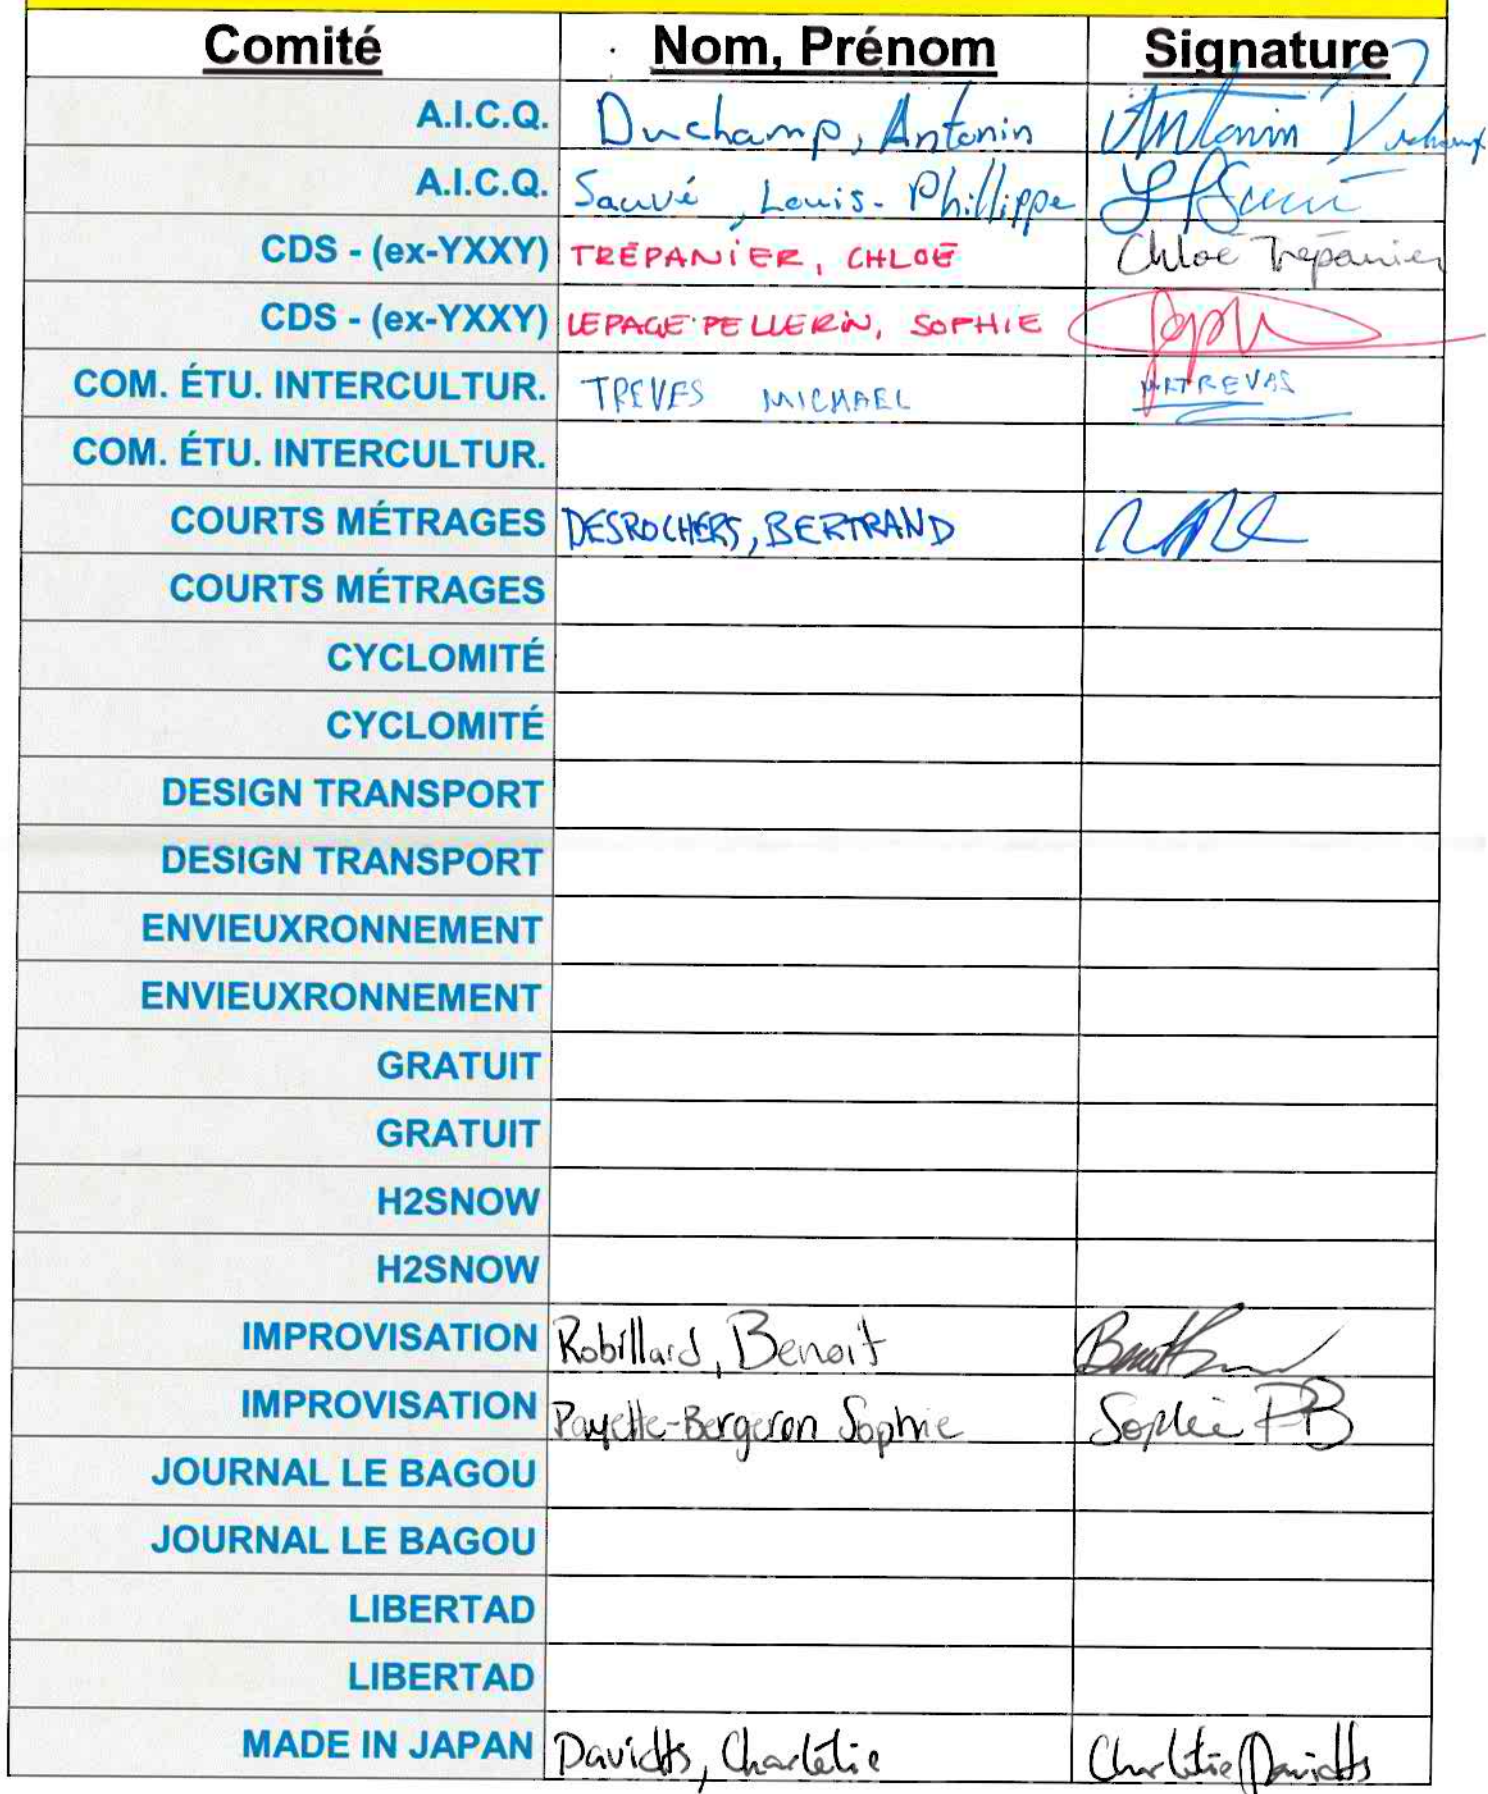 Comité Nom, Prénom Signature
A.I.C.Q. Duchamp, Antonin Antonin Duchamp
A.I.C.Q. Sauvé, Louis-Phillippe
CDS - (ex-YXXY) TRÉPANIER, CHLOÉ Chloé Trépanier
CDS - (ex-YXXY) LEPAGE PELLERIN, SOPHIE
COM. ÉTU. INTERCULTUR. TREVES MICHAEL
COM. ÉTU. INTERCULTUR.
COURTS MÉTRAGES DESROCHERS, BERTRAND
COURTS MÉTRAGES
CYCLOMITÉ
CYCLOMITÉ
DESIGN TRANSPORT
DESIGN TRANSPORT
ENVIEUXRONNEMENT
ENVIEUXRONNEMENT
GRATUIT
GRATUIT
H2SNOW
H2SNOW
IMPROVISATION Robillard, Benoit
IMPROVISATION Payette-Bergeron Sophie Sophie PB
JOURNAL LE BAGOU
JOURNAL LE BAGOU
LIBERTAD
LIBERTAD
MADE IN JAPAN Davidts, Charlélie Charlélie Davidts